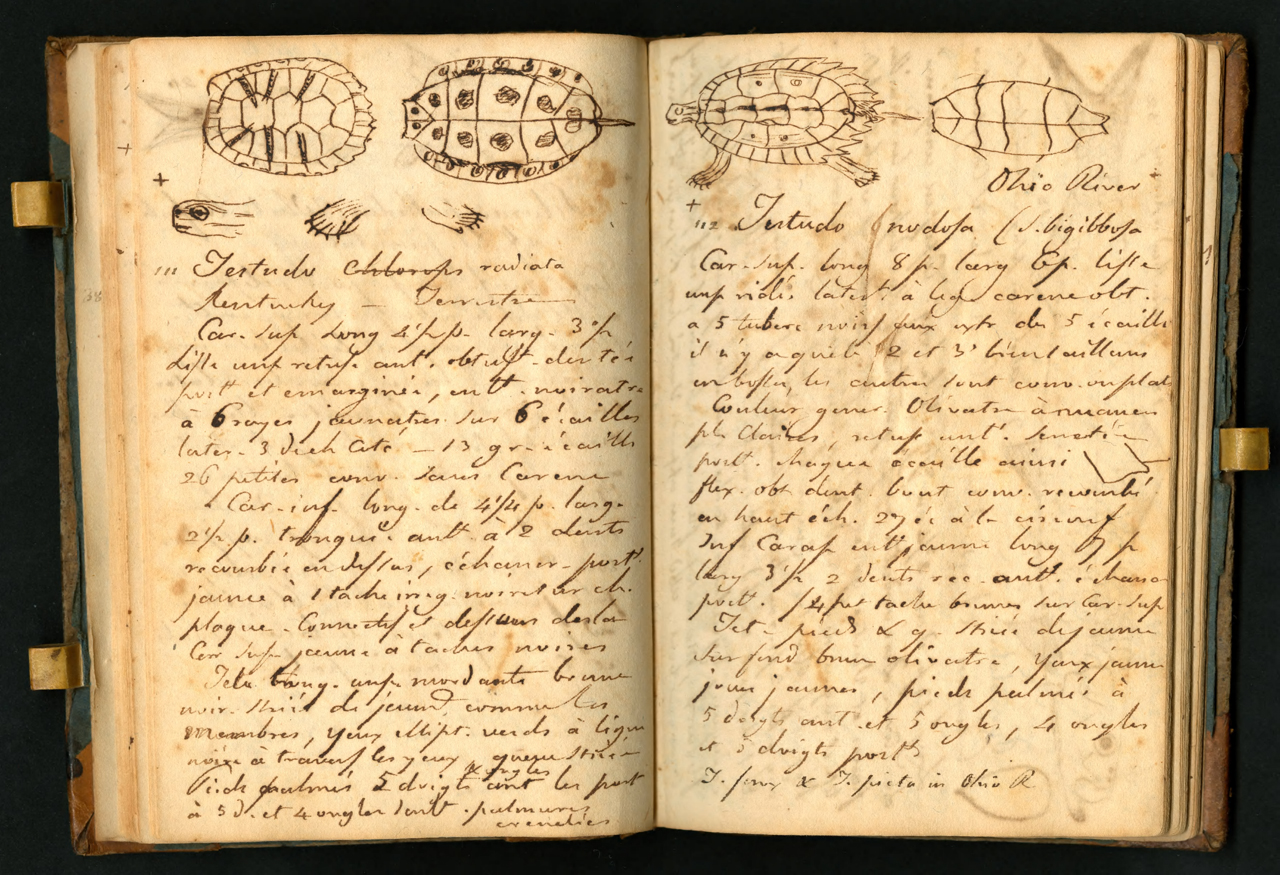 111 Testudo Chlorops radiata
Kentucky — Terrestre
Car. sup long 4½ p. larg. 3½
Lisse unif retuse ant. obtus. dentée
post et emarginée, ent. noiratre
à 6 rayes jaunatres sur 6 écailles
later. 3 d ech Coté — 13 gr. écaills
26 petites conv. sans Carene
Car. inf. long. de 4¼ p. larg.
2½ p. tronquée antt à 2 dents
recourbée en dessus, échancr. postt
jaune à 1 tache irreg. noire sur ch.
plaque. Connectif et dessous de la
Car sup jaune à taches noires
Tete oblong. mordante brune
noir. striée de jaune comme les
membres, yeux ellipt. verds à ligne
noire à travers les yeux queue striée
Pieds palmés 5 doigts & ongles ant les post
à 5 d. et 4 ongles dont palmures
crenelées
Ohio River
112 Testudo nodosa (s. bigibbosa
Car. sup. long 8 p. larg 6 p. lisse
unp ridée latert à lig. carene obt.
a 5 tuberc noirs aux extr des 5 écaills
il n'y a que le 2 et 3e bien saillans
en bosse, les autres sont conv. ou plats
Couleur gener. Olivatre à nuances
pl. Claires, retuse antt. serretée
postt. chaque écaille ainsi
flex. obt dent. bout conv. recourbé
en haut éch. 27 éc à la circonf
Inf Carap entt jaune long 7 p
larg 3½ 2 dents rec. antt. échancr
postt. 4 pet tache brunes sur Car. sup
Tete pieds & q. striée de jaune
sur fond brun olivatre, yeux jaune
joues jaunes, pieds palmés à
5 doigts ant et 5 ongles, 4 ongles
et 5 doigts postt
T. & T. picta in Ohio R